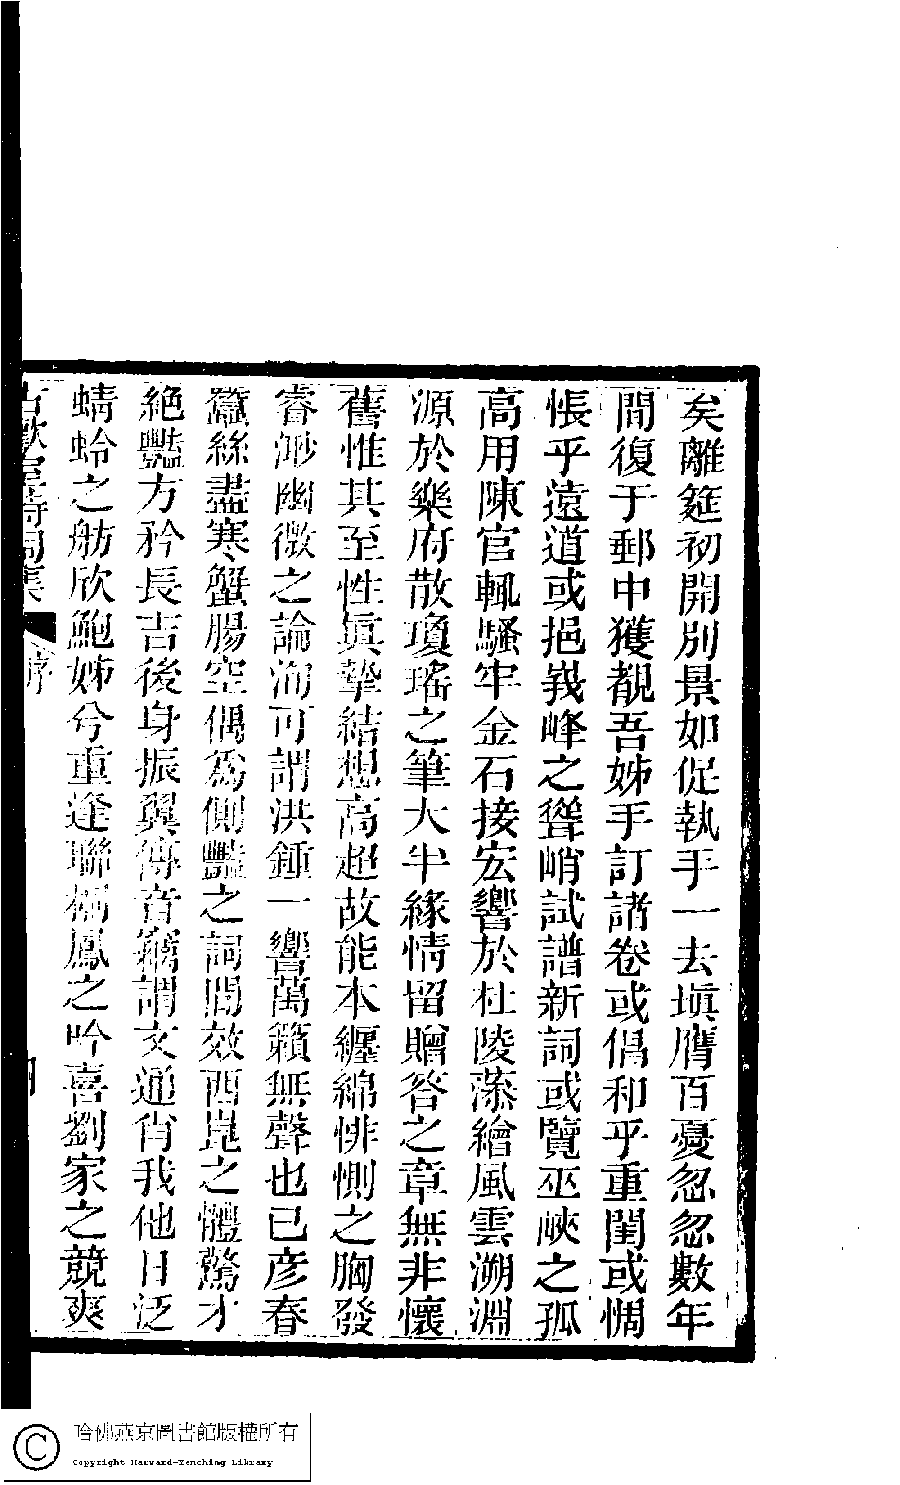 矣離筵初開別景如促執手一去塡膺百憂忽忽數年
間復于郵中獲覩吾姊手訂諸卷或倡和乎重閨或惆
悵乎遠道或挹峩峰之聳峭試譜新詞或覽巫峽之孤
高用陳官輒騷牢金石接宏響於杜陵藻繪風雲溯淵
源於樂府散瓊瑤之筆大半緣情留贈答之章無非懷
舊惟其至性眞摯結想高超故能本纏綿悱惻之胸發
睿渺幽微之論洵可謂洪鍾一響萬籟無聲也已彦春
蠶絲盡寒蟹腸空偶爲側豔之詞間效西崑之體驚才
絕豔方矜長吉後身振翼傳音竊謂文通肖我他日泛
蜻蛉之舫欣鮑姊兮重逢聯棲鳳之吟喜劉家之競爽
古歡室詩詞集
序
哈佛燕京圖書館版權所有
Copyright Harvard-Yenching Library